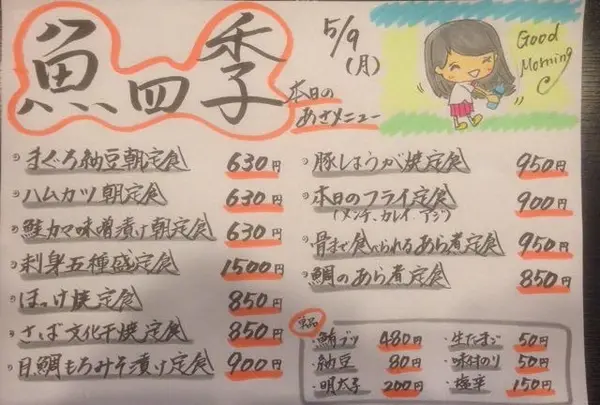 魚四季
5/9(月)
本日の
あさメニュー
Good
Morning
まぐろ納豆朝定食 630円
ハムカツ朝定食 630円
鮭カマ味噌漬け朝定食 630円
刺身五種盛定食 1500円
ほっけ焼定食 850円
さば文化干焼定食 850円
目鯛もろみそ漬け定食 900円
豚しょうが焼定食 950円
本日のフライ定食 900円
(メンチ、カレイ、アジ)
骨まで食べられるあら煮定食 950円
鯛のあら煮定食 850円
単品
・鮪ブツ 480円 ・生たまご 50円
・納豆 80円 ・味付のり 50円
・明太子 200円 ・塩辛 150円